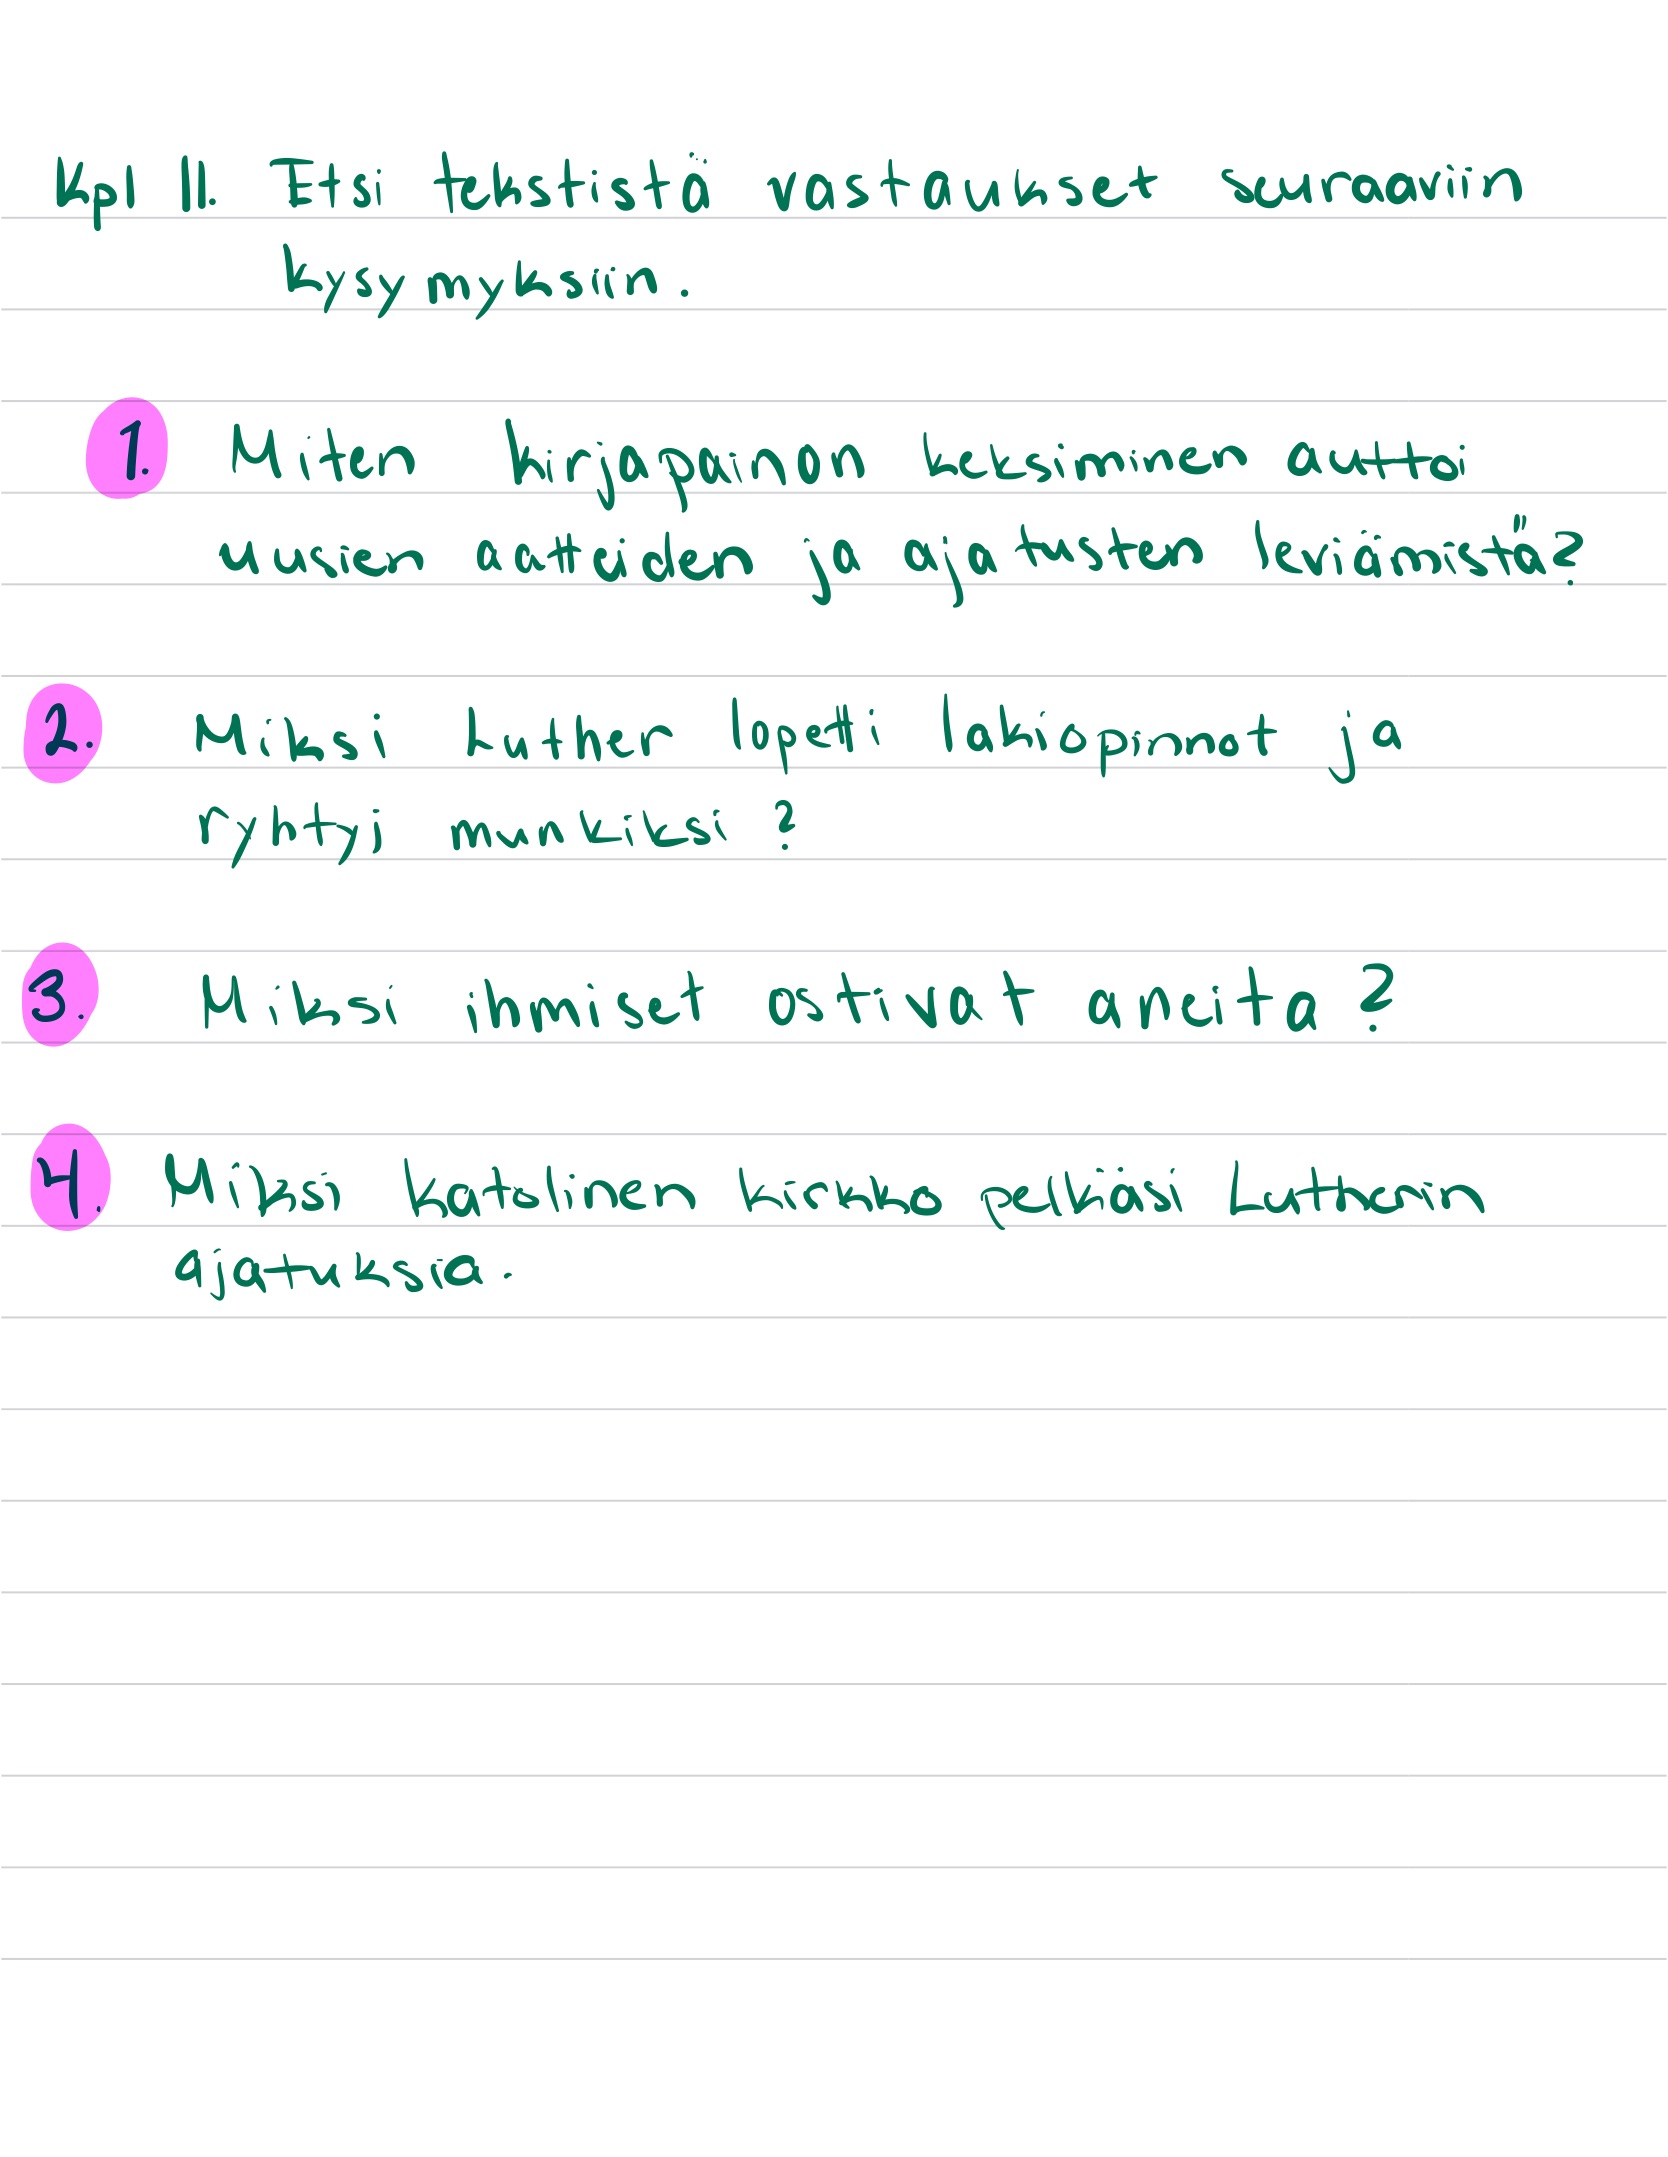 Kpl 11. Etsi tekstistä vastaukset seuraaviin
kysymyksiin.
1. Miten kirjapainon keksiminen auttoi
uusien aatteiden ja ajatusten leviämistä?
2. Miksi Luther lopetti lakiopinnot ja
ryhtyi munkiksi?
3. Miksi ihmiset ostivat aneita?
4. Miksi katolinen kirkko pelkäsi Lutherin
ajatuksia.